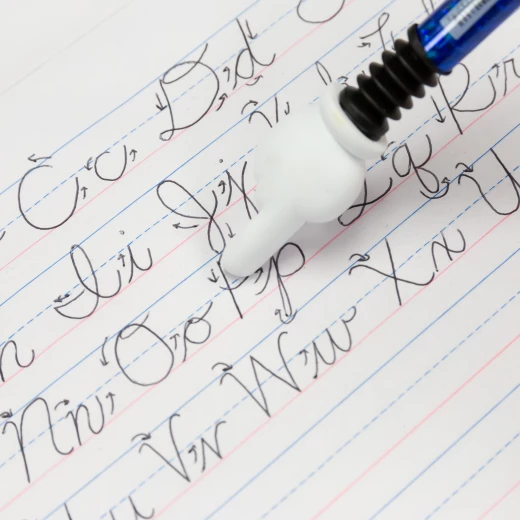 Cc Dd
Ii Jj
Nn Oo Pp Qq Rr
u Vv Ww Xx Y